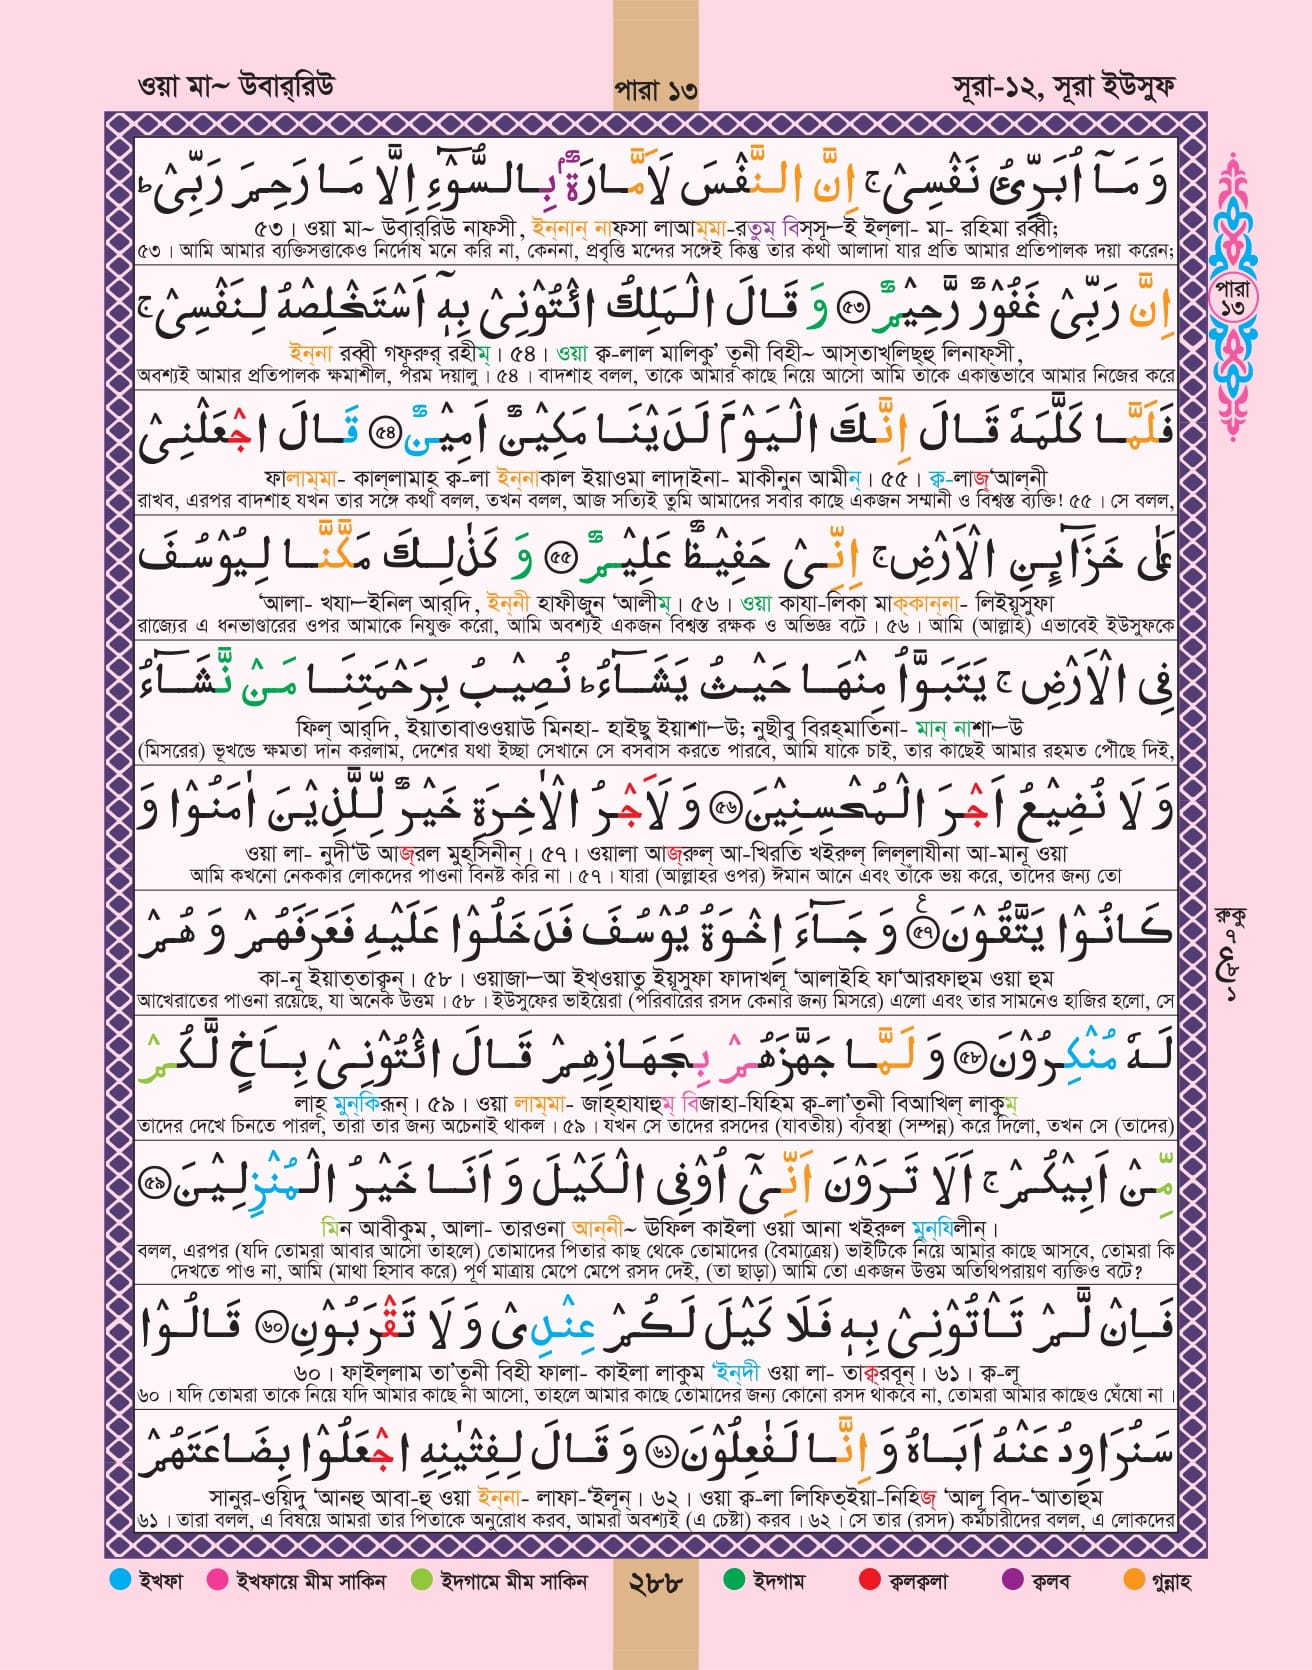 ওয়া মা~ উবার্‌রিউ
পারা ১৩
সূরা-১২, সূরা ইউসুফ
وَ مَآ اُبَرِّئُ نَفْسِيْ ۚ اِنَّ النَّفْسَ لَاَمَّارَةٌۢ بِالسُّوْٓءِ اِلَّا مَا رَحِمَ رَبِّيْ ؕ
৫৩। ওয়া মা~ উবার্‌রিউ নাফসী, ইন্‌নান্‌ নাফসা লাআম্‌মা-রতুম্‌ বিস্‌সূ—ই ইল্‌লা- মা- রহিমা রব্বী;
৫৩। আমি আমার ব্যক্তিসত্তাকেও নির্দোষ মনে করি না, কেননা, প্রবৃত্তি মন্দের সঙ্গেই কিন্তু তার কথা আলাদা যার প্রতি আমার প্রতিপালক দয়া করেন;
اِنَّ رَبِّيْ غَفُوْرٌ رَّحِيْمٌ ﴿৫৩﴾ وَ قَالَ الْمَلِكُ ائْتُوْنِيْ بِهٖٓ اَسْتَخْلِصْهُ لِنَفْسِيْ ۚ
ইন্‌না রব্বী গফূরুর্‌ রহীম্‌। ৫৪। ওয়া ক্ব-লাল মালিকু’ তূনী বিহী~ আস্‌তাখ্‌লিছ্‌হু লিনাফ্‌সী,
অবশ্যই আমার প্রতিপালক ক্ষমাশীল, পরম দয়ালু। ৫৪। বাদশাহ বলল, তাকে আমার কাছে নিয়ে আসো আমি তাকে একান্তভাবে আমার নিজের করে
فَلَمَّا كَلَّمَهٗ قَالَ اِنَّكَ الْيَوْمَ لَدَيْنَا مَكِيْنٌ اَمِيْنٌ ﴿৫৪﴾ قَالَ اجْعَلْنِيْ
ফালাম্‌মা- কাল্‌লামাহূ ক্ব-লা ইন্‌নাকাল ইয়াওমা লাদাইনা- মাকীনুন আমীন্‌। ৫৫। ক্ব-লাজ্‌‘আল্‌নী
রাখব, এরপর বাদশাহ যখন তার সঙ্গে কথা বলল, তখন বলল, আজ সত্যিই তুমি আমাদের সবার কাছে একজন সম্মানী ও বিশ্বস্ত ব্যক্তি! ৫৫। সে বলল,
عَلٰى خَزَآئِنِ الْاَرْضِ ۚ اِنِّيْ حَفِيْظٌ عَلِيْمٌ ﴿৫৫﴾ وَ كَذٰلِكَ مَكَّنَّا لِيُوْسُفَ
‘আলা- খযা—ইনিল আর্‌দি, ইন্‌নী হাফীজুন ‘আলীম্‌। ৫৬। ওয়া কাযা-লিকা মাক্‌কান্‌না- লিইয়ূসুফা
রাজ্যের এ ধনভাণ্ডারের ওপর আমাকে নিযুক্ত করো, আমি অবশ্যই একজন বিশ্বস্ত রক্ষক ও অভিজ্ঞ বটে। ৫৬। আমি (আল্লাহ) এভাবেই ইউসুফকে
فِي الْاَرْضِ ۚ يَتَبَوَّاُ مِنْهَا حَيْثُ يَشَآءُ ؕ نُصِيْبُ بِرَحْمَتِنَا مَنْ نَّشَآءُ
ফিল্‌ আর্‌দি, ইয়াতাবাওওয়াউ মিনহা- হাইছু ইয়াশা—উ; নুছীবু বিরহ্‌মাতিনা- মান্‌ নাশা—উ
(মিসরের) ভূখন্ডে ক্ষমতা দান করলাম, দেশের যথা ইচ্ছা সেখানে সে বসবাস করতে পারবে, আমি যাকে চাই, তার কাছেই আমার রহমত পৌঁছে দিই,
وَ لَا نُضِيْعُ اَجْرَ الْمُحْسِنِيْنَ ﴿৫৬﴾ وَ لَاَجْرُ الْاٰخِرَةِ خَيْرٌ لِّلَّذِيْنَ اٰمَنُوْا وَ
ওয়া লা- নুদী‘উ আজ্‌রল মুহ্‌সিনীন্‌। ৫৭। ওয়ালা আজ্‌রুল্‌ আ-খিরতি খইরুল্‌ লিল্‌লাযীনা আ-মানূ ওয়া
আমি কখনো নেককার লোকদের পাওনা বিনষ্ট করি না। ৫৭। যারা (আল্লাহর ওপর) ঈমান আনে এবং তাঁকে ভয় করে, তাদের জন্য তো
كَانُوْا يَتَّقُوْنَ ﴿৫৭﴾ۧ وَ جَآءَ اِخْوَةُ يُوْسُفَ فَدَخَلُوْا عَلَيْهِ فَعَرَفَهُمْ وَ هُمْ
কা-নূ ইয়াত্‌তাক্বূন্‌। ৫৮। ওয়াজা—আ ইখ্‌ওয়াতু ইয়ূসুফা ফাদাখলূ ‘আলাইহি ফা‘আরফাহুম ওয়া হুম
আখেরাতের পাওনা রয়েছে, যা অনেক উত্তম। ৫৮। ইউসুফের ভাইয়েরা (পরিবারের রসদ কেনার জন্য মিসরে) এলো এবং তার সামনেও হাজির হলো, সে
لَهٗ مُنْكِرُوْنَ ﴿৫৮﴾ وَ لَمَّا جَهَّزَهُمْ بِجَهَازِهِمْ قَالَ ائْتُوْنِيْ بِاَخٍ لَّكُمْ
লাহূ মুন্‌কিরূন্‌। ৫৯। ওয়া লাম্‌মা- জাহ্‌হাযাহুম্‌ বিজাহা-যিহিম ক্ব-লা’তূনী বিআখিল্‌ লাকুম্‌
তাদের দেখে চিনতে পারল, তারা তার জন্য অচেনাই থাকল। ৫৯। যখন সে তাদের রসদের (যাবতীয়) ব্যবস্থা (সম্পন্ন) করে দিলো, তখন সে (তাদের)
مِّنْ اَبِيْكُمْ ۚ اَلَا تَرَوْنَ اَنِّيْٓ اُوْفِي الْكَيْلَ وَ اَنَا خَيْرُ الْمُنْزِلِيْنَ ﴿৫৯﴾
মিন আবীকুম, আলা- তারওনা আন্‌নী~ ঊফিল কাইলা ওয়া আনা খইরুল মুন্‌যিলীন্‌।
বলল, এরপর (যদি তোমরা আবার আসো তাহলে) তোমাদের পিতার কাছ থেকে তোমাদের (বৈমাত্রেয়) ভাইটিকে নিয়ে আমার কাছে আসবে, তোমরা কি
দেখতে পাও না, আমি (মাথা হিসাব করে) পূর্ণ মাত্রায় মেপে মেপে রসদ দেই, (তা ছাড়া) আমি তো একজন উত্তম অতিথিপরায়ণ ব্যক্তিও বটে?
فَاِنْ لَّمْ تَاْتُوْنِيْ بِهٖ فَلَا كَيْلَ لَكُمْ عِنْدِيْ وَ لَا تَقْرَبُوْنِ ﴿৬০﴾ قَالُوْا
৬০। ফাইল্‌লাম তা’তূনী বিহী ফালা- কাইলা লাকুম ‘ইন্‌দী ওয়া লা- তাক্ব্‌রবূন্‌। ৬১। ক্ব-লূ
৬০। যদি তোমরা তাকে নিয়ে যদি আমার কাছে না আসো, তাহলে আমার কাছে তোমাদের জন্য কোনো রসদ থাকবে না, তোমরা আমার কাছেও ঘেঁষো না।
سَنُرَاوِدُ عَنْهُ اَبَاهُ وَ اِنَّا لَفٰعِلُوْنَ ﴿৬১﴾ وَ قَالَ لِفِتْيٰنِهِ اجْعَلُوْا بِضَاعَتَهُمْ
সানুর-ওয়িদু ‘আনহু আবা-হু ওয়া ইন্‌না- লাফা-‘ইলূন্‌। ৬২। ওয়া ক্ব-লা লিফিত্‌ইয়া-নিহিজ্‌ ‘আলূ বিদ-‘আতাহুম
৬১। তারা বলল, এ বিষয়ে আমরা তার পিতাকে অনুরোধ করব, আমরা অবশ্যই (এ চেষ্টা) করব। ৬২। সে তার (রসদ) কর্মচারীদের বলল, এ লোকদের
পারা
১৩
রুকু
৭
ع
৮
১
ইখফা
ইখফায়ে মীম সাকিন
ইদগামে মীম সাকিন
২৮৮
ইদগাম
ক্বলক্বলা
ক্বলব
গুন্নাহ